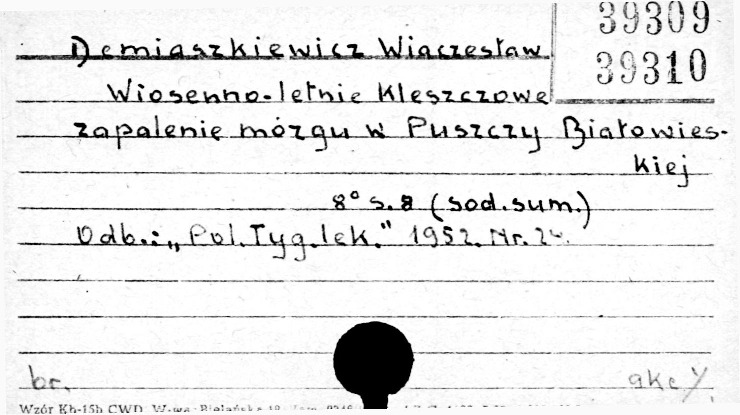 39309
39310
Demiaszkiewicz Wiaczesław
Wiosenno-letnie kleszczowe
zapalenie mózgu w Puszczy Białowies-
kiej
8° s.8 (sod.sum.)
Odb.: „Pol.Tyg.lek." 1952. Nr. 24.
br.
Wzór Kh-15b CWD, W-wa, Bielańska